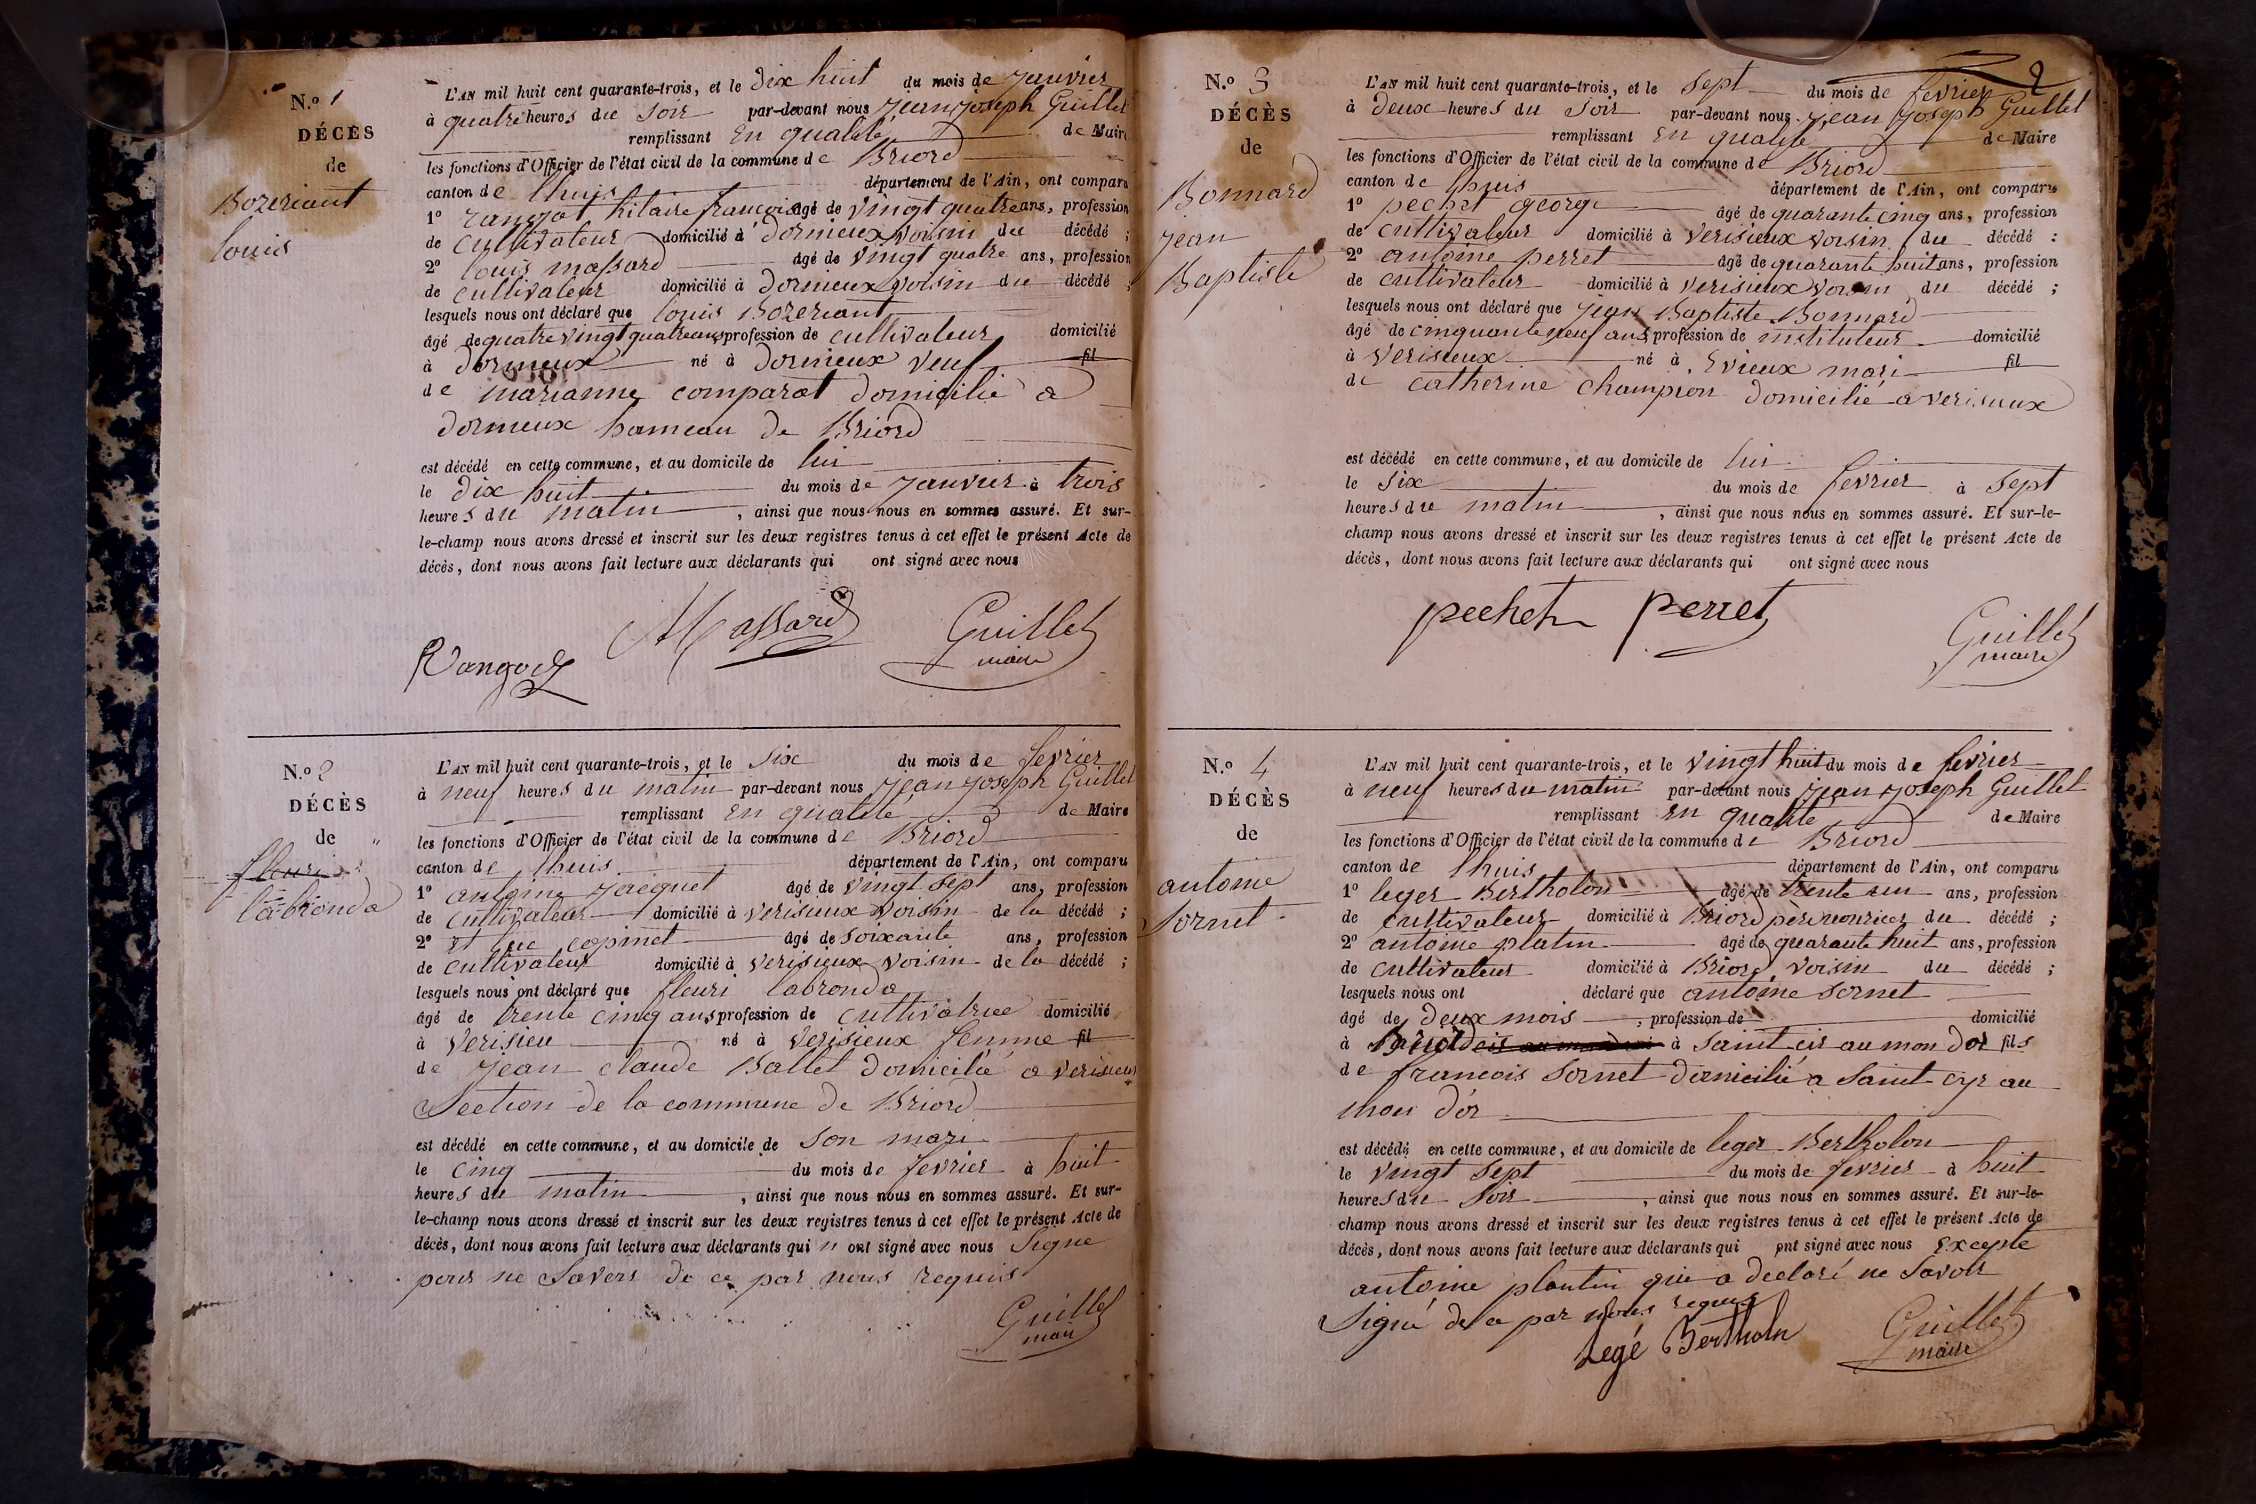 N.º 1
DÉCÈS
de
Bozeriant
louis
L'AN mil huit cent quarante-trois, et le dix huit du mois de janvier
à quatre heures du soir par-devant nous jean joseph Guillet
remplissant en qualité de Maire
les fonctions d'Officier de l'état civil de la commune de Briord
canton de lhuis département de l'Ain, ont comparu
1º rangot hilaire francois âgé de vingt quatre ans, profession
de cultivateur domicilié à dormieux voisin du décédé ;
2º louis massard âgé de vingt quatre ans, profession
de cultivateur domicilié à dormieux voisin du décédé ;
lesquels nous ont déclaré que louis Bozeriant
âgé de quatre vingt quatre ans profession de cultivateur domicilié
à dormieux né à dormieux veuf fil
de marianne comparat domicilié a
dormeux hameau de Briord
est décédé en cette commune, et au domicile de lui
le dix huit du mois de janvier à trois
heures du matin, ainsi que nous nous en sommes assuré. Et sur-
le-champ nous avons dressé et inscrit sur les deux registres tenus à cet effet le présent Acte de
décès, dont nous avons fait lecture aux déclarants qui ont signé avec nous
Massard Guillet
Rangod maire
N.º 2
DÉCÈS
de
fleuri
labronda
L'AN mil huit cent quarante-trois, et le six du mois de fevrier
à neuf heures du matin par-devant nous jean joseph Guillet
remplissant en qualité de Maire
les fonctions d'Officier de l'état civil de la commune de Briord
canton de lhuis département de l'Ain, ont comparu
1º antoine jacquet âgé de vingt sept ans, profession
de cultivateur domicilié à verisieux voisin de la décédé ;
2º et luc copinet âgé de soixante ans, profession
de cultivateur domicilié à verisieux voisin de la décédé ;
lesquels nous ont déclaré que fleuri labronda
âgé de trente cinq ans profession de cultivatrice domicilié
à verisieu né à verisieux femme fil
de jean claude Ballet domicilié a verisieux
Section de la commune de Briord
est décédé en cette commune, et au domicile de son mari
le cinq du mois de fevrier à huit
heures du matin, ainsi que nous nous en sommes assuré. Et sur-
le-champ nous avons dressé et inscrit sur les deux registres tenus à cet effet le présent Acte de
décès, dont nous avons fait lecture aux déclarants qui n ont signé avec nous signe
pour ne savoir de ce par nous requis
Guillet
maire
2
N.º 3
DÉCÈS
de
Bonnard
jean
Baptiste
L'AN mil huit cent quarante-trois, et le sept du mois de fevrier
à deux heures du soir par-devant nous jean joseph Guillet
remplissant en qualité de Maire
les fonctions d'Officier de l'état civil de la commune de Briord
canton de lhuis département de l'Ain, ont comparu
1º pechet george âgé de quarante cinq ans, profession
de cultivateur domicilié à verisieux voisin du décédé ;
2º antoine perret âgé de quarante huit ans, profession
de cultivateur domicilié à verisieux voisin du décédé ;
lesquels nous ont déclaré que jean Baptiste Bonnard
âgé de cinquante neuf ans profession de instituteur domicilié
à verisieux né à Evieux mari fil
de catherine champion domicilié a verisieux
est décédé en cette commune, et au domicile de lui
le six du mois de fevrier à sept
heures du matin, ainsi que nous nous en sommes assuré. Et sur-le-
champ nous avons dressé et inscrit sur les deux registres tenus à cet effet le présent Acte de
décès, dont nous avons fait lecture aux déclarants qui ont signé avec nous
pechet perret Guillet
maire
N.º 4
DÉCÈS
de
antoine
Sornet
L'AN mil huit cent quarante-trois, et le vingt huit du mois de fevrier
à neuf heures du matin par-devant nous jean joseph Guillet
remplissant en qualité de Maire
les fonctions d'Officier de l'état civil de la commune de Briord
canton de lhuis département de l'Ain, ont comparu
1º leger Bertholon âgé de trente un ans, profession
de cultivateur domicilié à Briord père nouricier du décédé ;
2º antoine platin âgé de quarante huit ans, profession
de cultivateur domicilié à Briord voisin du décédé ;
lesquels nous ont déclaré que antoine Sornet
âgé de deux mois, profession de domicilié
à Briord à saint cir au mon dor fils
de francois Sornet domicilié a Saint cyr au
mon d'or
est décédé en cette commune, et au domicile de leger Bertholon
le vingt sept du mois de fevrier à huit
heures du soir, ainsi que nous nous en sommes assuré. Et sur-le-
champ nous avons dressé et inscrit sur les deux registres tenus à cet effet le présent Acte de
décès, dont nous avons fait lecture aux déclarants qui ont signé avec nous Excepte
antoine plantin qui a declaré ne savoir
Signé de ce par nous requis
Legé Bertholn Guillet
maire